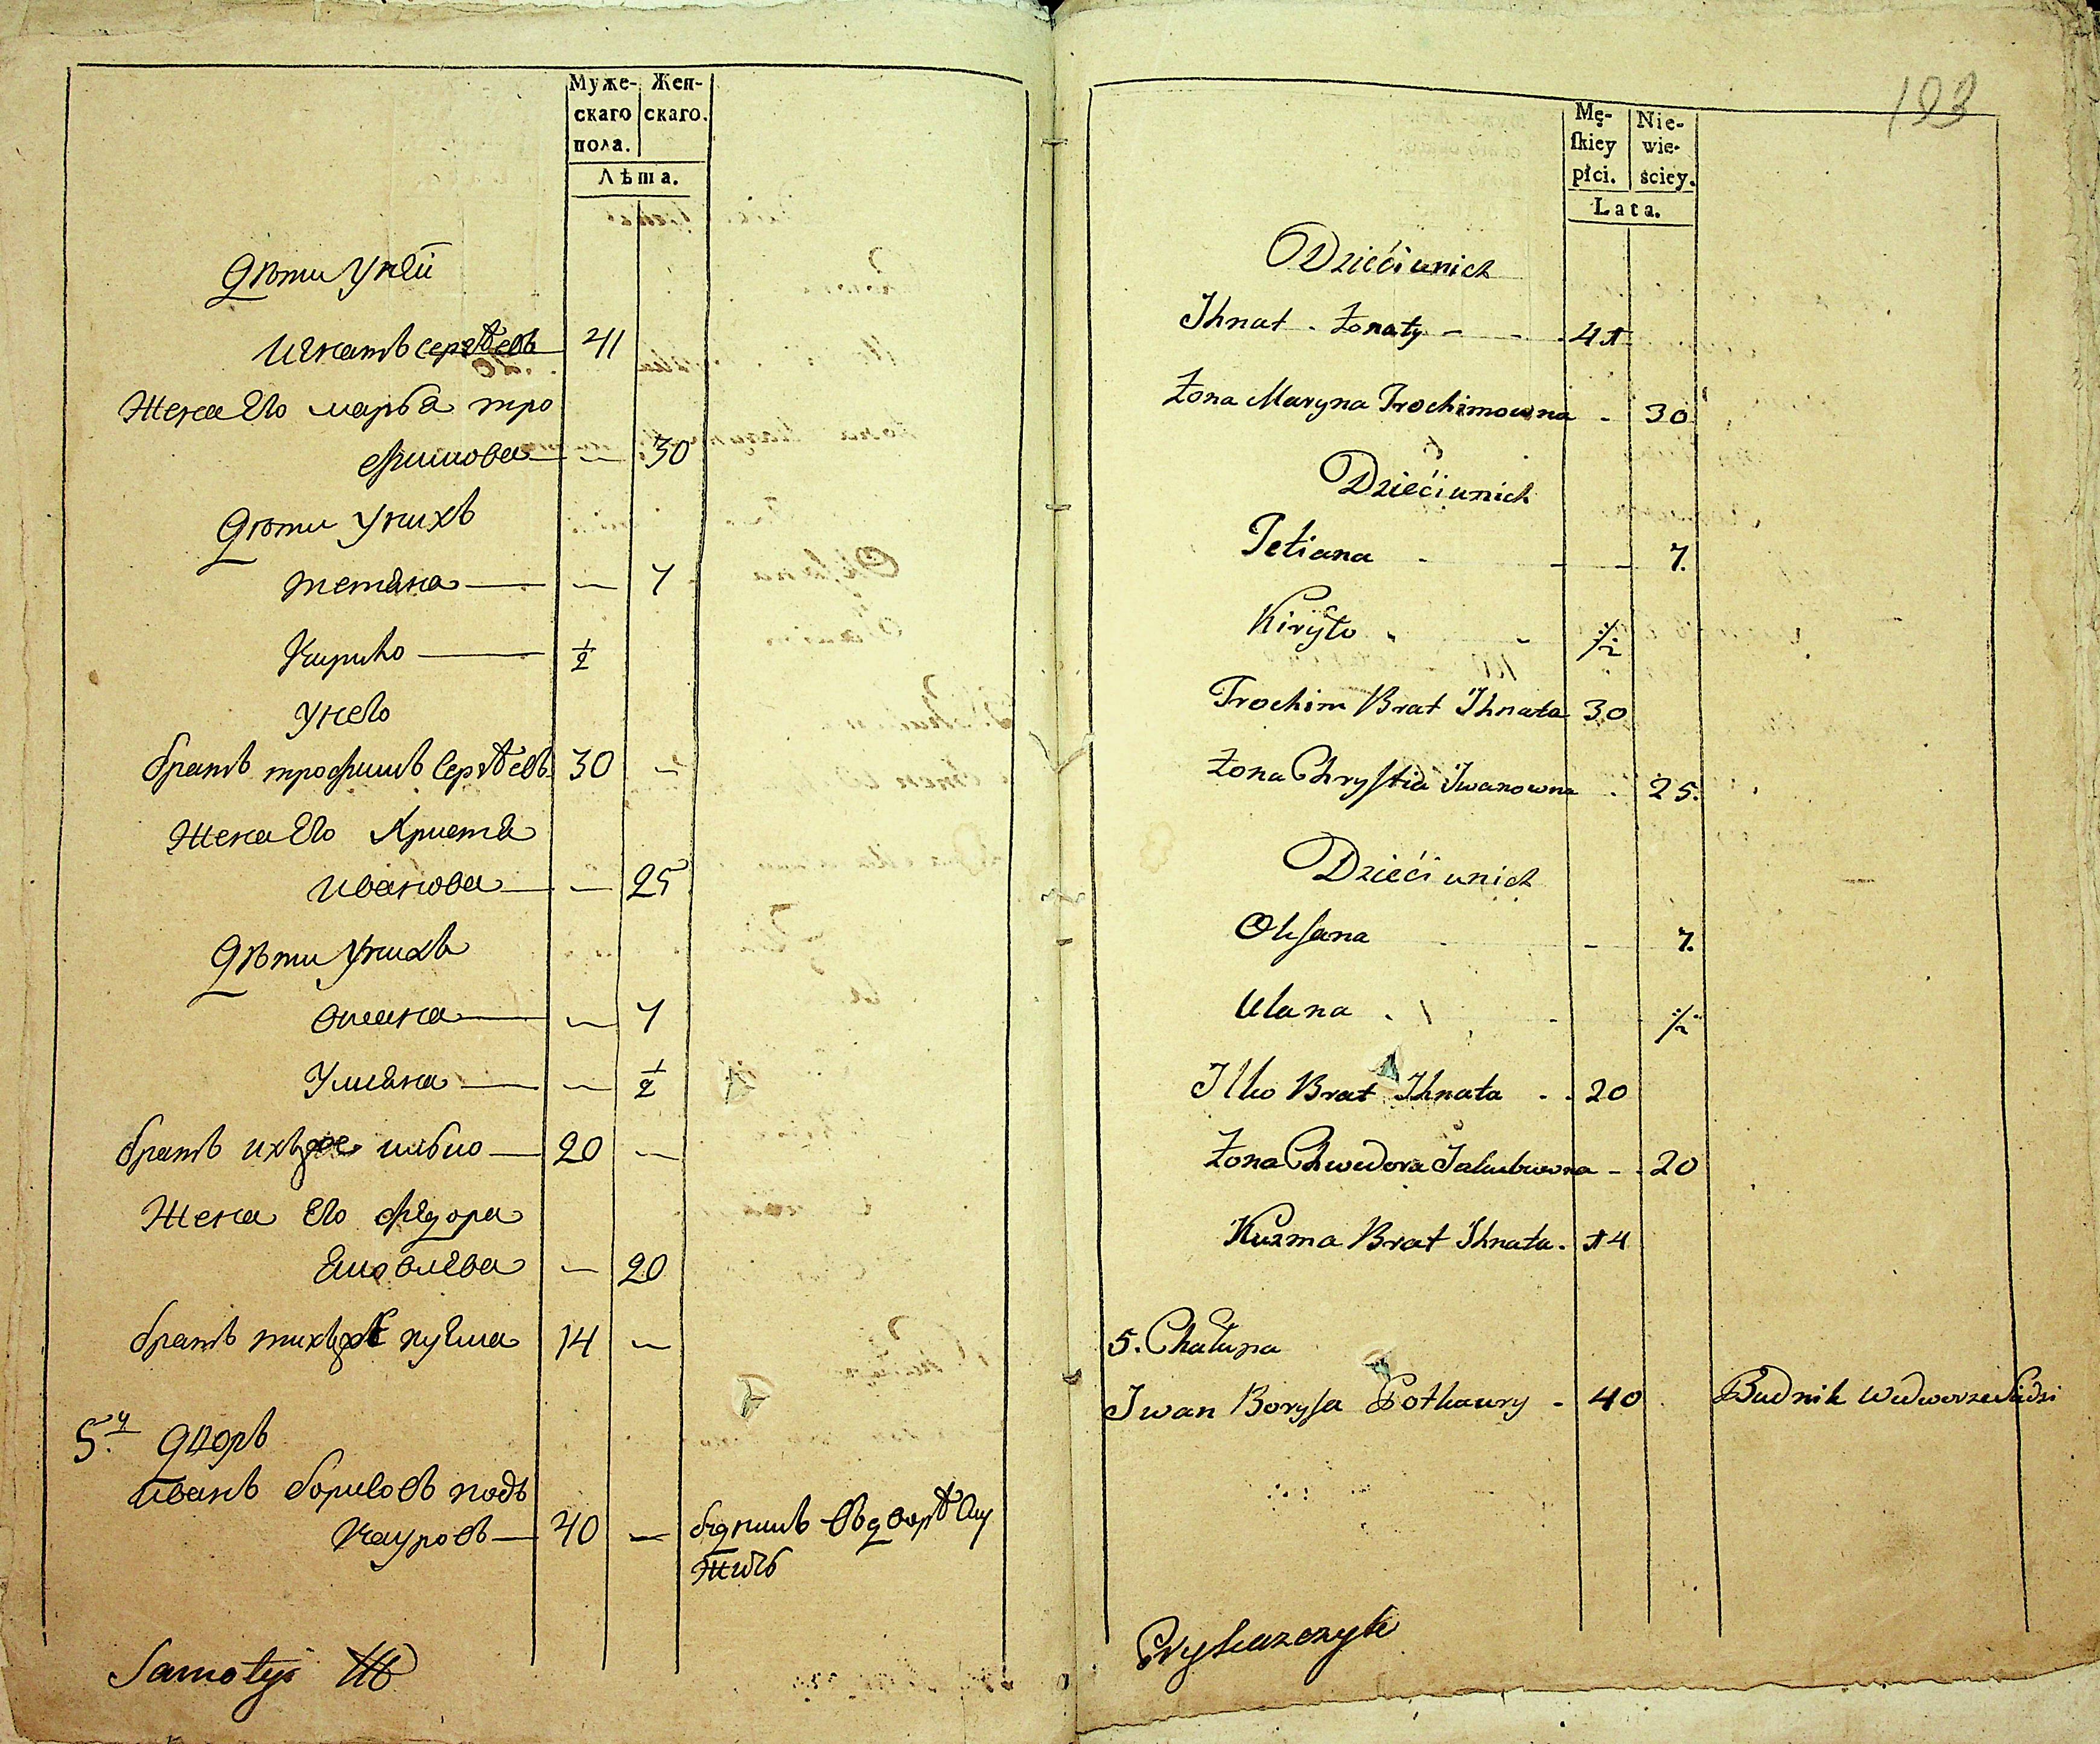 Муже-
скаго
пола.
Жен-
скаго.
Лѣта.
Дѣти у ней
Игнатъ Сергѣевъ 41
Жена Его марья тро
фимова — 30
Дѣти у нихъ
тетяна — 7
Кирило — 1/2
у него
братъ трофимъ Сергѣевъ 30 —
Жена Его Христя
иванова — 25
Дѣти у нихъ
Оксана — 7
Уляна — 1/2
братъ ихъ же илько — 20 —
Жена Его фѣдора
Яковлева — 20
братъ тихъ же кузма 14 —
5.й дворъ
иванъ борисовъ подъ
кауровъ — 40 — будникъ въ дворѣ слу
житъ
Samotyi
193
Mę-
ſkiey
płci.
Nie-
wie-
ściey.
Lata.
Dzieći u nich
Ihnat - Żonaty - - - 41
Żona Maryna Trochimowna - 30
Dzieći u nich
Tetiana - - - 7.
Kiryło - - 1/2
Trochim Brat Ihnata 30
Żona Chryſtia Iwanowna - 25.
Dzieći u nich
Okſana - - 7.
Ulana - - 1/2
Ilko Brat Ihnata - - 20
Żona Chwedora Jakubowna - - 20
Kuzma Brat Ihnata. 14
5. Chałupa
Iwan Boryſa Potkaury - 40 Budnik we dworze służi
Prykazczyk